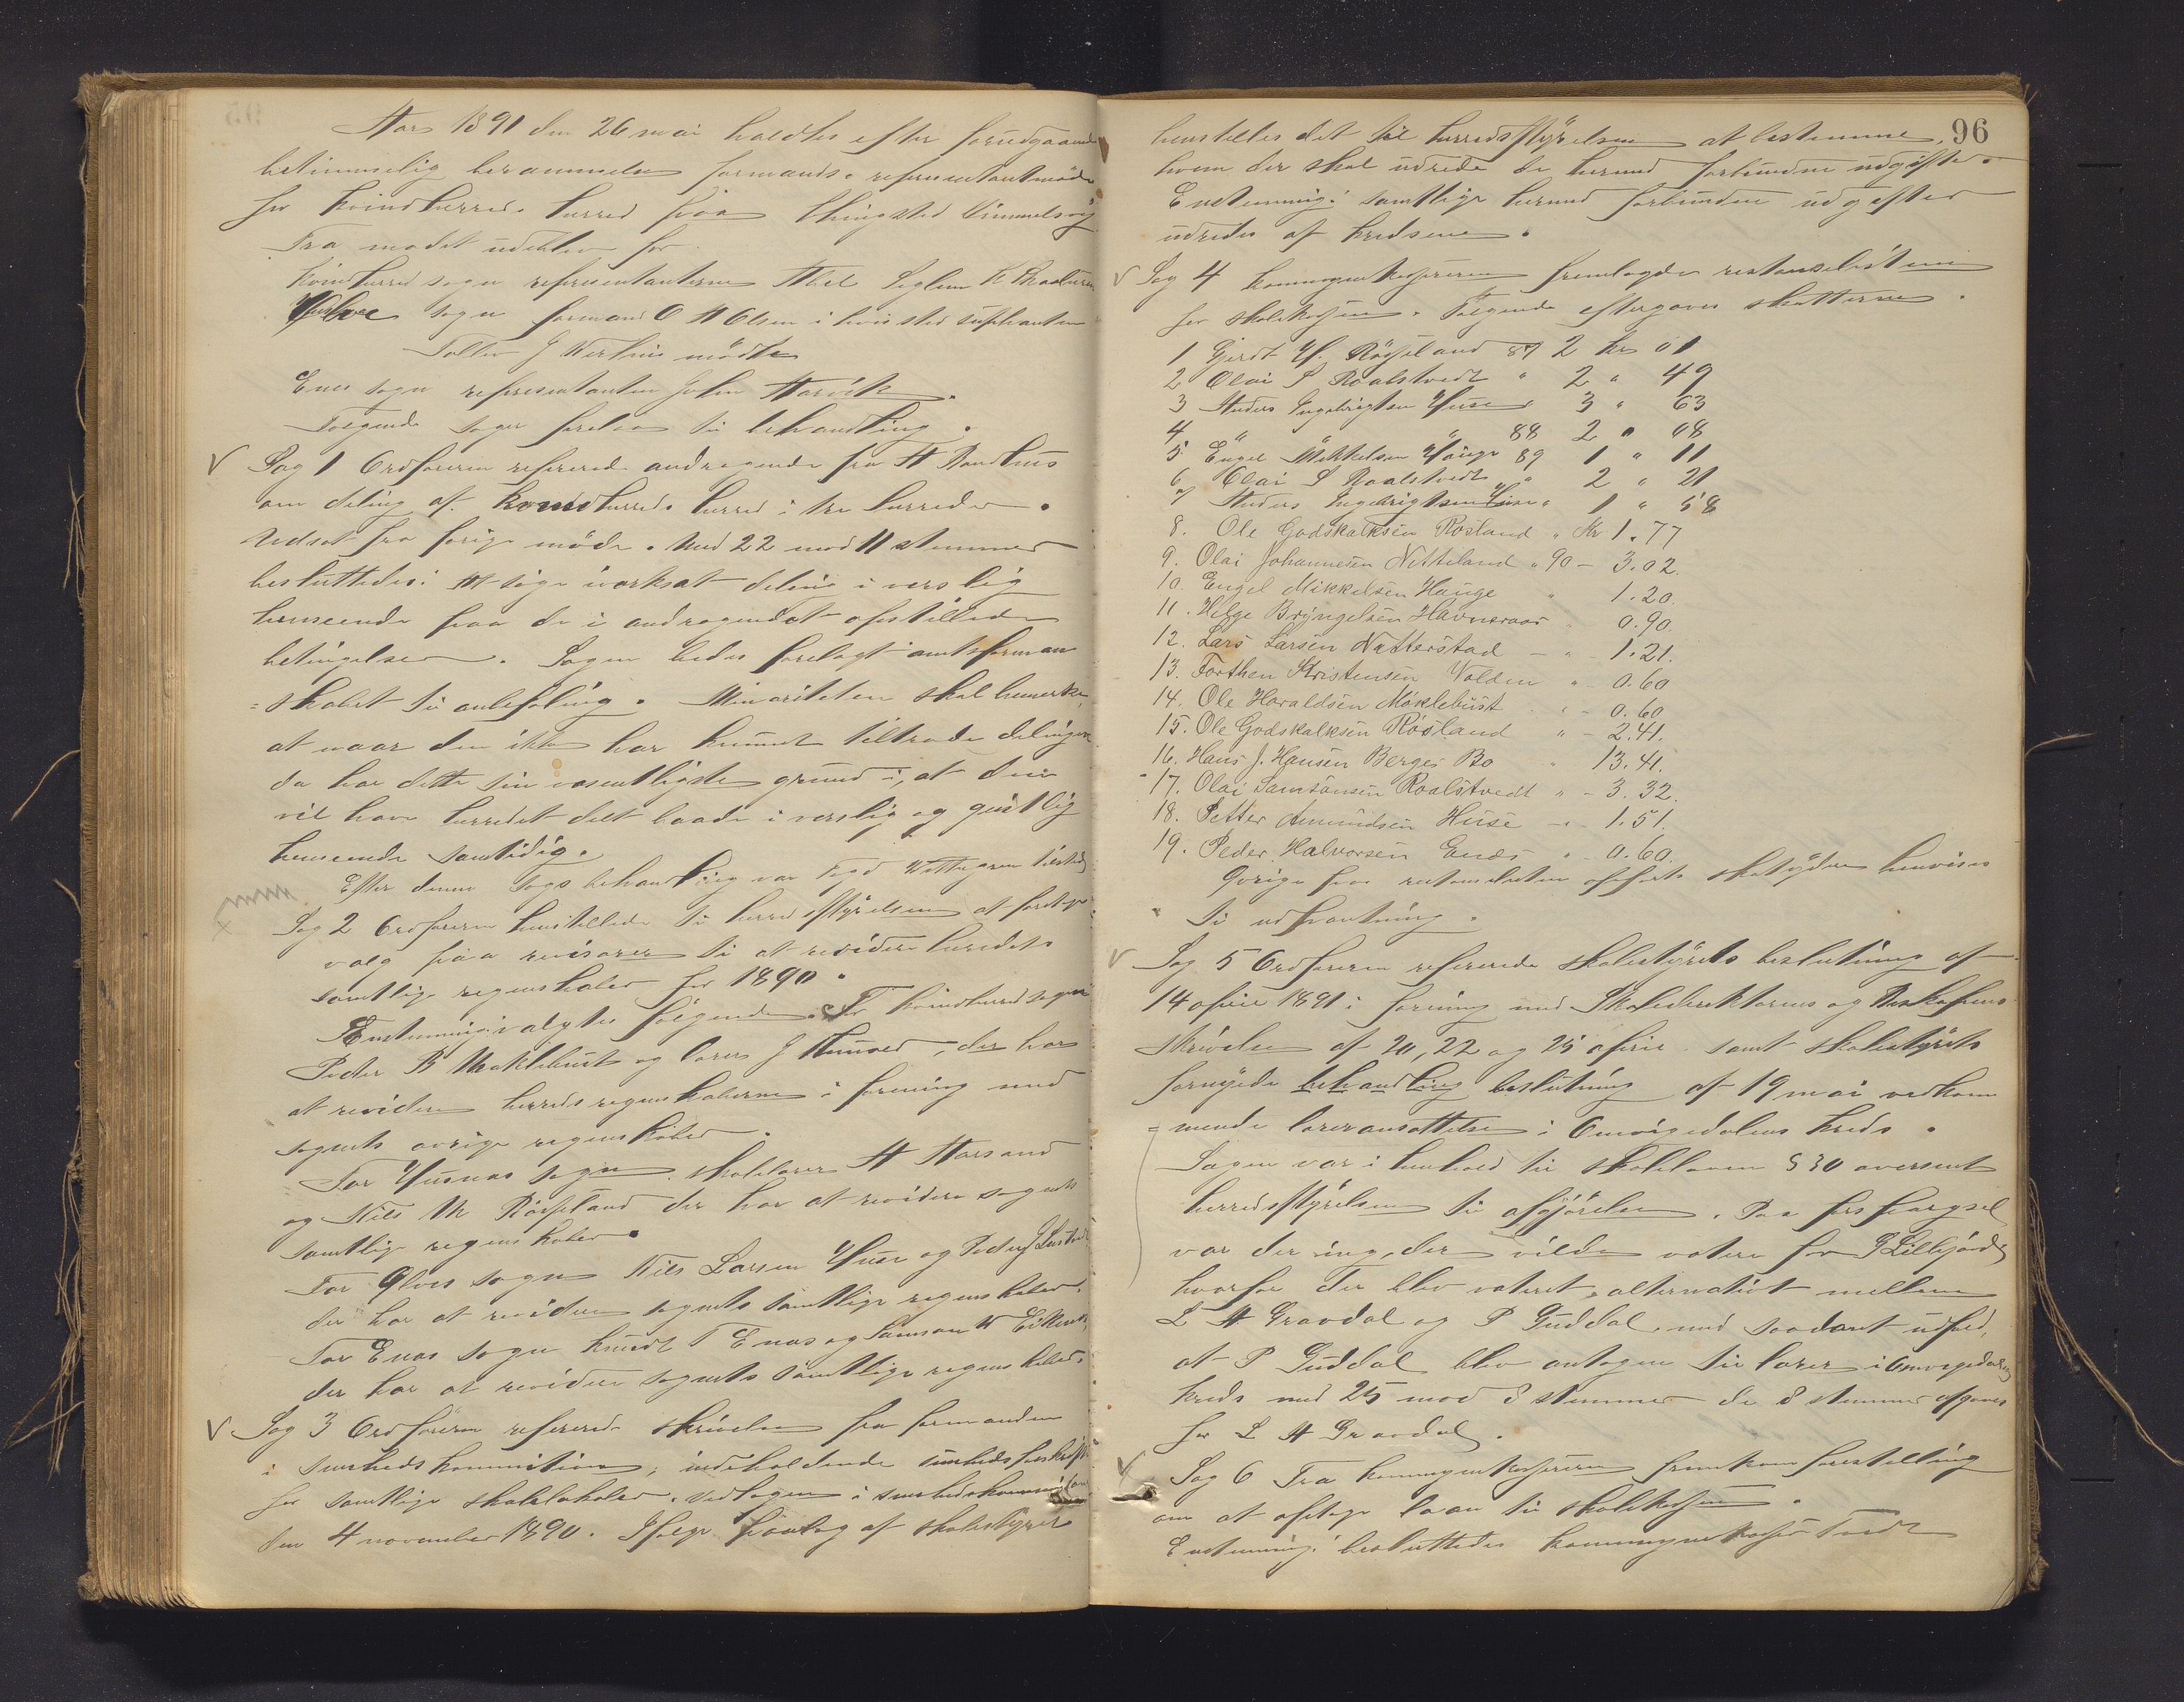 Aar 1891 den 26 mai holdtes efter forudgaaende
betimmelig berammelse formands- representantmöde
for Kvindherreds herred paa thingsted Vimmelsvig
Fra mødet udeblev for
Kvindherred sogn representanterne Abel Seglem K Skaaluren
Ølve sogn formand O H Olsen i hvis sted suplianten
Tollev J mödte
Enes sogn representanten John Aarvik.
Følgende sager forelaa til behandling.
V Sag 1 Ordføreren refererede andragende fra H Sandhus
om deling af Kvindherreds herred i tre herreder.
Udsat fra forrige möde. Med 22 mod 11 stemmer
besluttedes: At søge iverksat deling i verslig
henseende paa de i andragendet opstillede
betingelser. Sagen bedes forelagt amtsforman
=skabet til anbefaling. Minoriteten skal bemerke,
at naar den ikke har kunnet tiltræde delingen
da har dette sin væsentligste grund i, at den
vil have herredet delt baade i verslig og geistlig
henseende samtidig.
Efter denne sags behandling var foged tilstede
Sag 2 Ordføreren henstillede til herredsstyrelsen at foretage
valg paa revisorer til at revidere herredets
samtlige regnskaber for 1890.
Enstemmig valgtes følgende. For Kvindherred sogn
Peder B Møklebust og lærer J, der har
at revidere herredsregnskaberne i forening med
sognets øvrige regnskaber.
For Husnes sogn. skolelærer A Aarsand
og Nils M Røssland der har at revidere sognets
samtlige regnskaber.
For Ølves sogn Nils Larsen Huse og Peder J
der har at revidere sognets samtlige regnskaber.
For Enes sogn Knudt T Enes og Samson W
der har at revidere sognets samtlige regnskaber.
V Sag 3 Ordføreren refererede skrivelse fra formanden
i sundhedskommitionen, indeholdende sundhedsforskrift
for samtlige skolelokaler. Vedtagen i sundhedskommitionen
den 4 november 1890. Ifølge forslag af skolestyret
96
henstilles det til herredsstyrelsen at bestemme,
hvem der skal udrede de herved forbundne udgifter.
Enstemmig: samtlige herved forbundne udgifter
udredes af kredsene.
V Sag 4 kommunekassereren fremlagde restanselisterne
for skolekassen. Følgende eftergaves skatterne.
1 Gjerdt H. Røssland 89 2 kr 01
2 Olai S Roalstvedt " 2 " 49
3 Anders Ingebrigtsen Huse " 3 " 63
4 " " 88 2 " 08
5 Engel Mikkelsen Hauge 89 1 " 11
6 Olai S Roalstvedt " " 2 " 21
7 Anders Ingebrigtsen Huse " 1 " 58
8. Ole Godskalksen Røsland " Kr 1.77
9. Olai Johannesen Netteland " 90 - 3.02.
10. Engel Mikkelsen Hauge " 1.20.
11. Helge Bryngelsen Havneraas " 0.90.
12. Lars Larsen Natterstad - " - 1.21.
13. Torthen Kristensen Valden " - 0.60
14. Ole Haraldsen Møklebust " - 0.60
15. Ole Godskalksen Røsland " - 2.41.
16. Hans J. Hansen Berges Bo " 13.41.
17. Olai Samsonsen Roalstvedt " - 3.32.
18. Petter Amundsen Huse - " - 1.51.
19. Peder Halvorsen Enæs " - 0.60.
Øvrige paa restanselisten opførte skatydere henvises
til udpantning.
V Sag 5 Ordføreren refererede skolestyrets beslutning af
14 april 1891 i forening med Skoledirektørens og Biskopens
skrivelse af 20, 22 og 25 april samt skolestyrets
fornyede behandling beslutning af 19 mai vedkom
=mende læreransættelse i Omvigedalens kreds.
Sagen var i henhold til skoleloven § 30 oversent
herredsstyrelsen til afgjørelse. Paa forspørgsel
var der ing, der vilde votere for P Lillefjord,
hvorfor der blev voteret alternativt mellem
L H Gravdal og P Guddal, med saadant udfald,
at P Guddal blev antagen til lærer i Omvigedalens
kreds med 25 mod 8 stemmer de 8 stemmer afgaves
for L H Gravdal.
V Sag 6 Fra kommunekassereren fremkom forestilling
om at optage laan til skolekassen.
Enstemmig: besluttedes kommunekasserer Tvedt